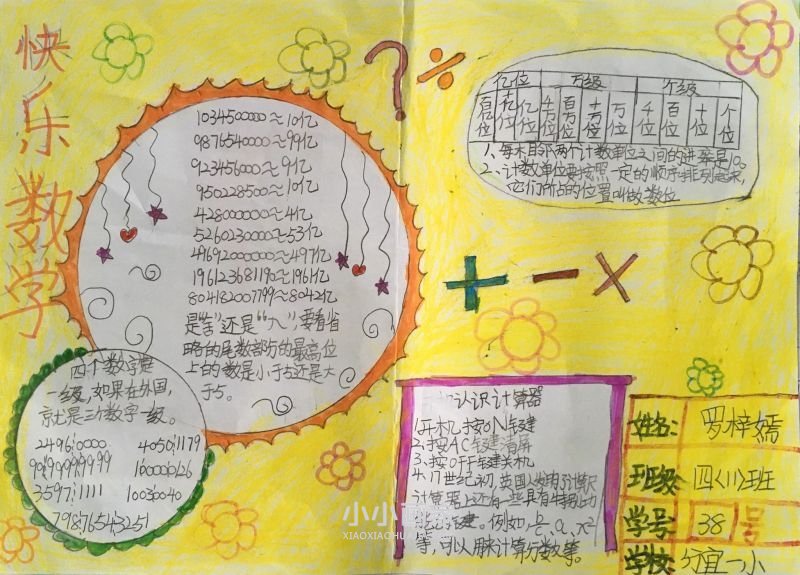 快乐数学
1034500000≈10亿
9876540000≈99亿
923456000≈9亿
950228500≈10亿
428000000≈4亿
5260230000≈53亿
49692000000≈497亿
19612368190≈196亿
804182007799≈8042亿
是“舍”还是“入”要看省
略的尾数部分的最高位
上的数是小于5还是大
于5。
四个数字是
一级,如果在外国,
就是三个数字一级。
亿位 万级 个级
百亿位 十亿位 亿位 千万位 百万位 十万位 万位 千位 百位 十位 个位
1、每相邻两个计数单位之间的进率是10。
2、计数单位要按照一定的顺序排列起来,
它们所占的位置叫做数位
? ÷
+ − ×
认识计算器
1.开机按ON键
2.按AC键清屏
3.按OFF键关机
4.17世纪初,英国人发明了计算
计算器上还有一些具有特殊功
键。例如,
等,可以用来计算分数等。
姓名: 罗梓嫣
班级: 四〈11〉班
学号: 38号
学校: 分宜一小
小小
XIAOXIAOHUA